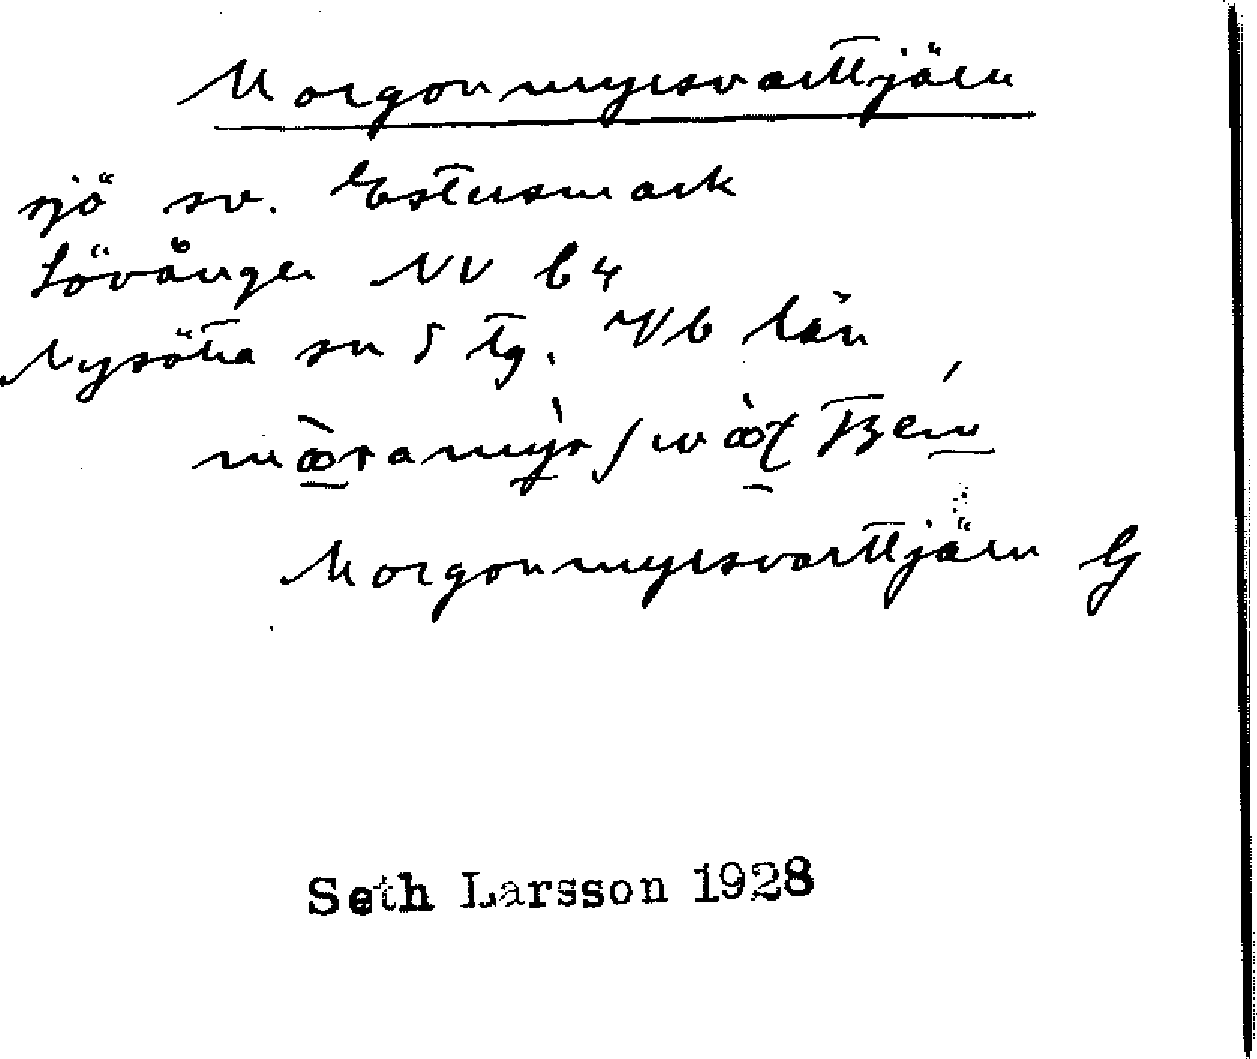 Morgonmyrsvarttjärn
sjö sv. Estersmark
Lövånger NV b4
Nysätra sn S tg. Vb län
Morgonmyrsvarttjärn G
Seth Larsson 1928